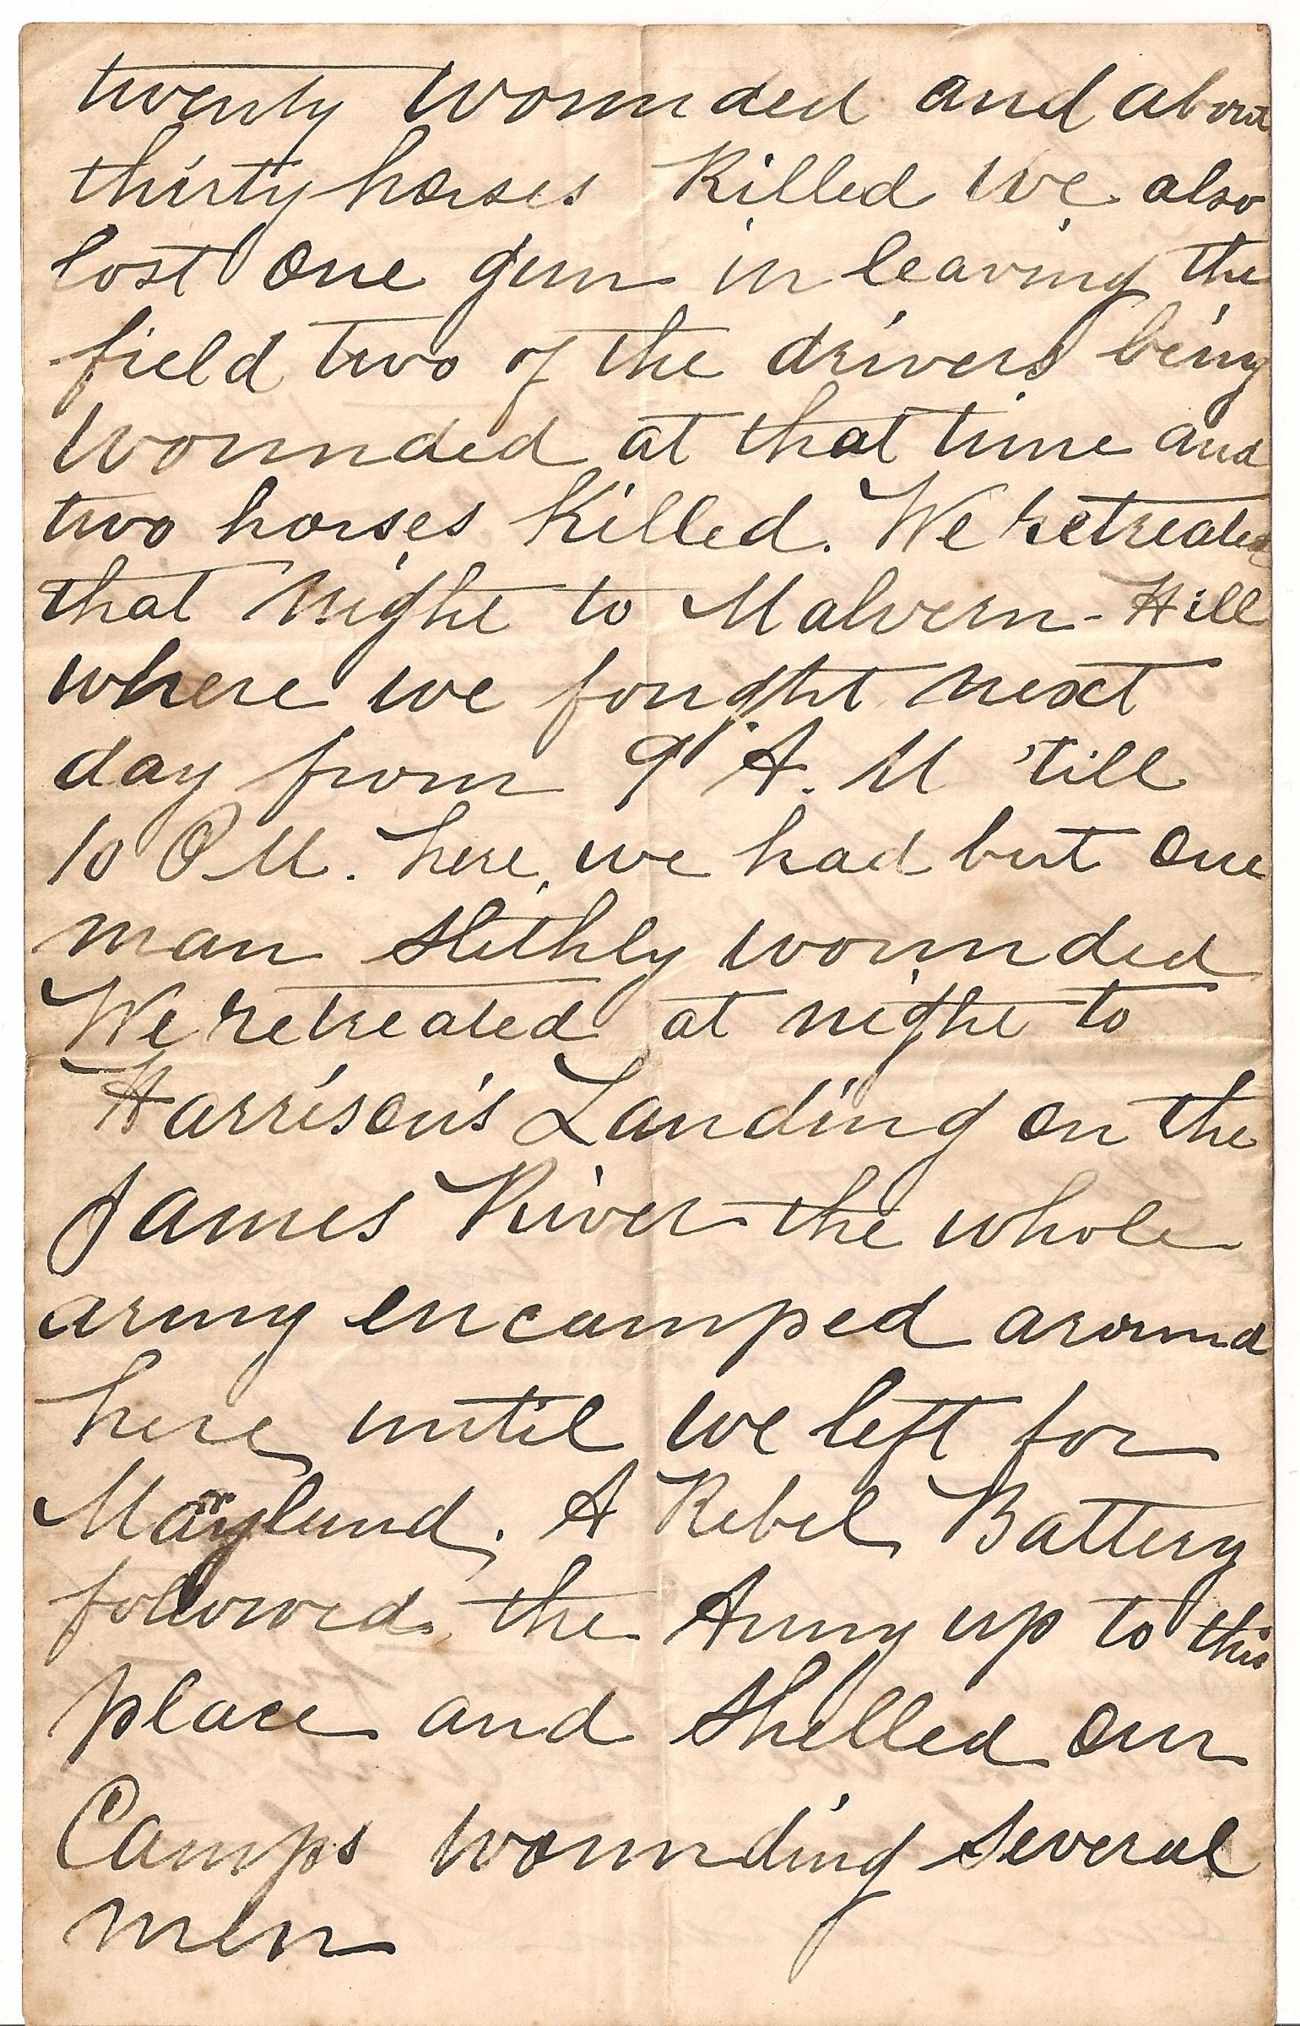 twenty wounded and about
thirty horses Killed we also
lost one gun in leaving the
field two of the drivers being
wounded at that time and
two horses Killed. We retreated
that night to Malvern-Hill
where we fought next
day from 9 A. M 'till
10 P.M. here, we had but one
man slithly wounded
We retreated at night to
Harrison's Landing on the
James River the whole
army encamped around
here until we left for
Maryland. A Rebel Battery
followed the Army up to this
place and shelled our
Camps wounding several
men